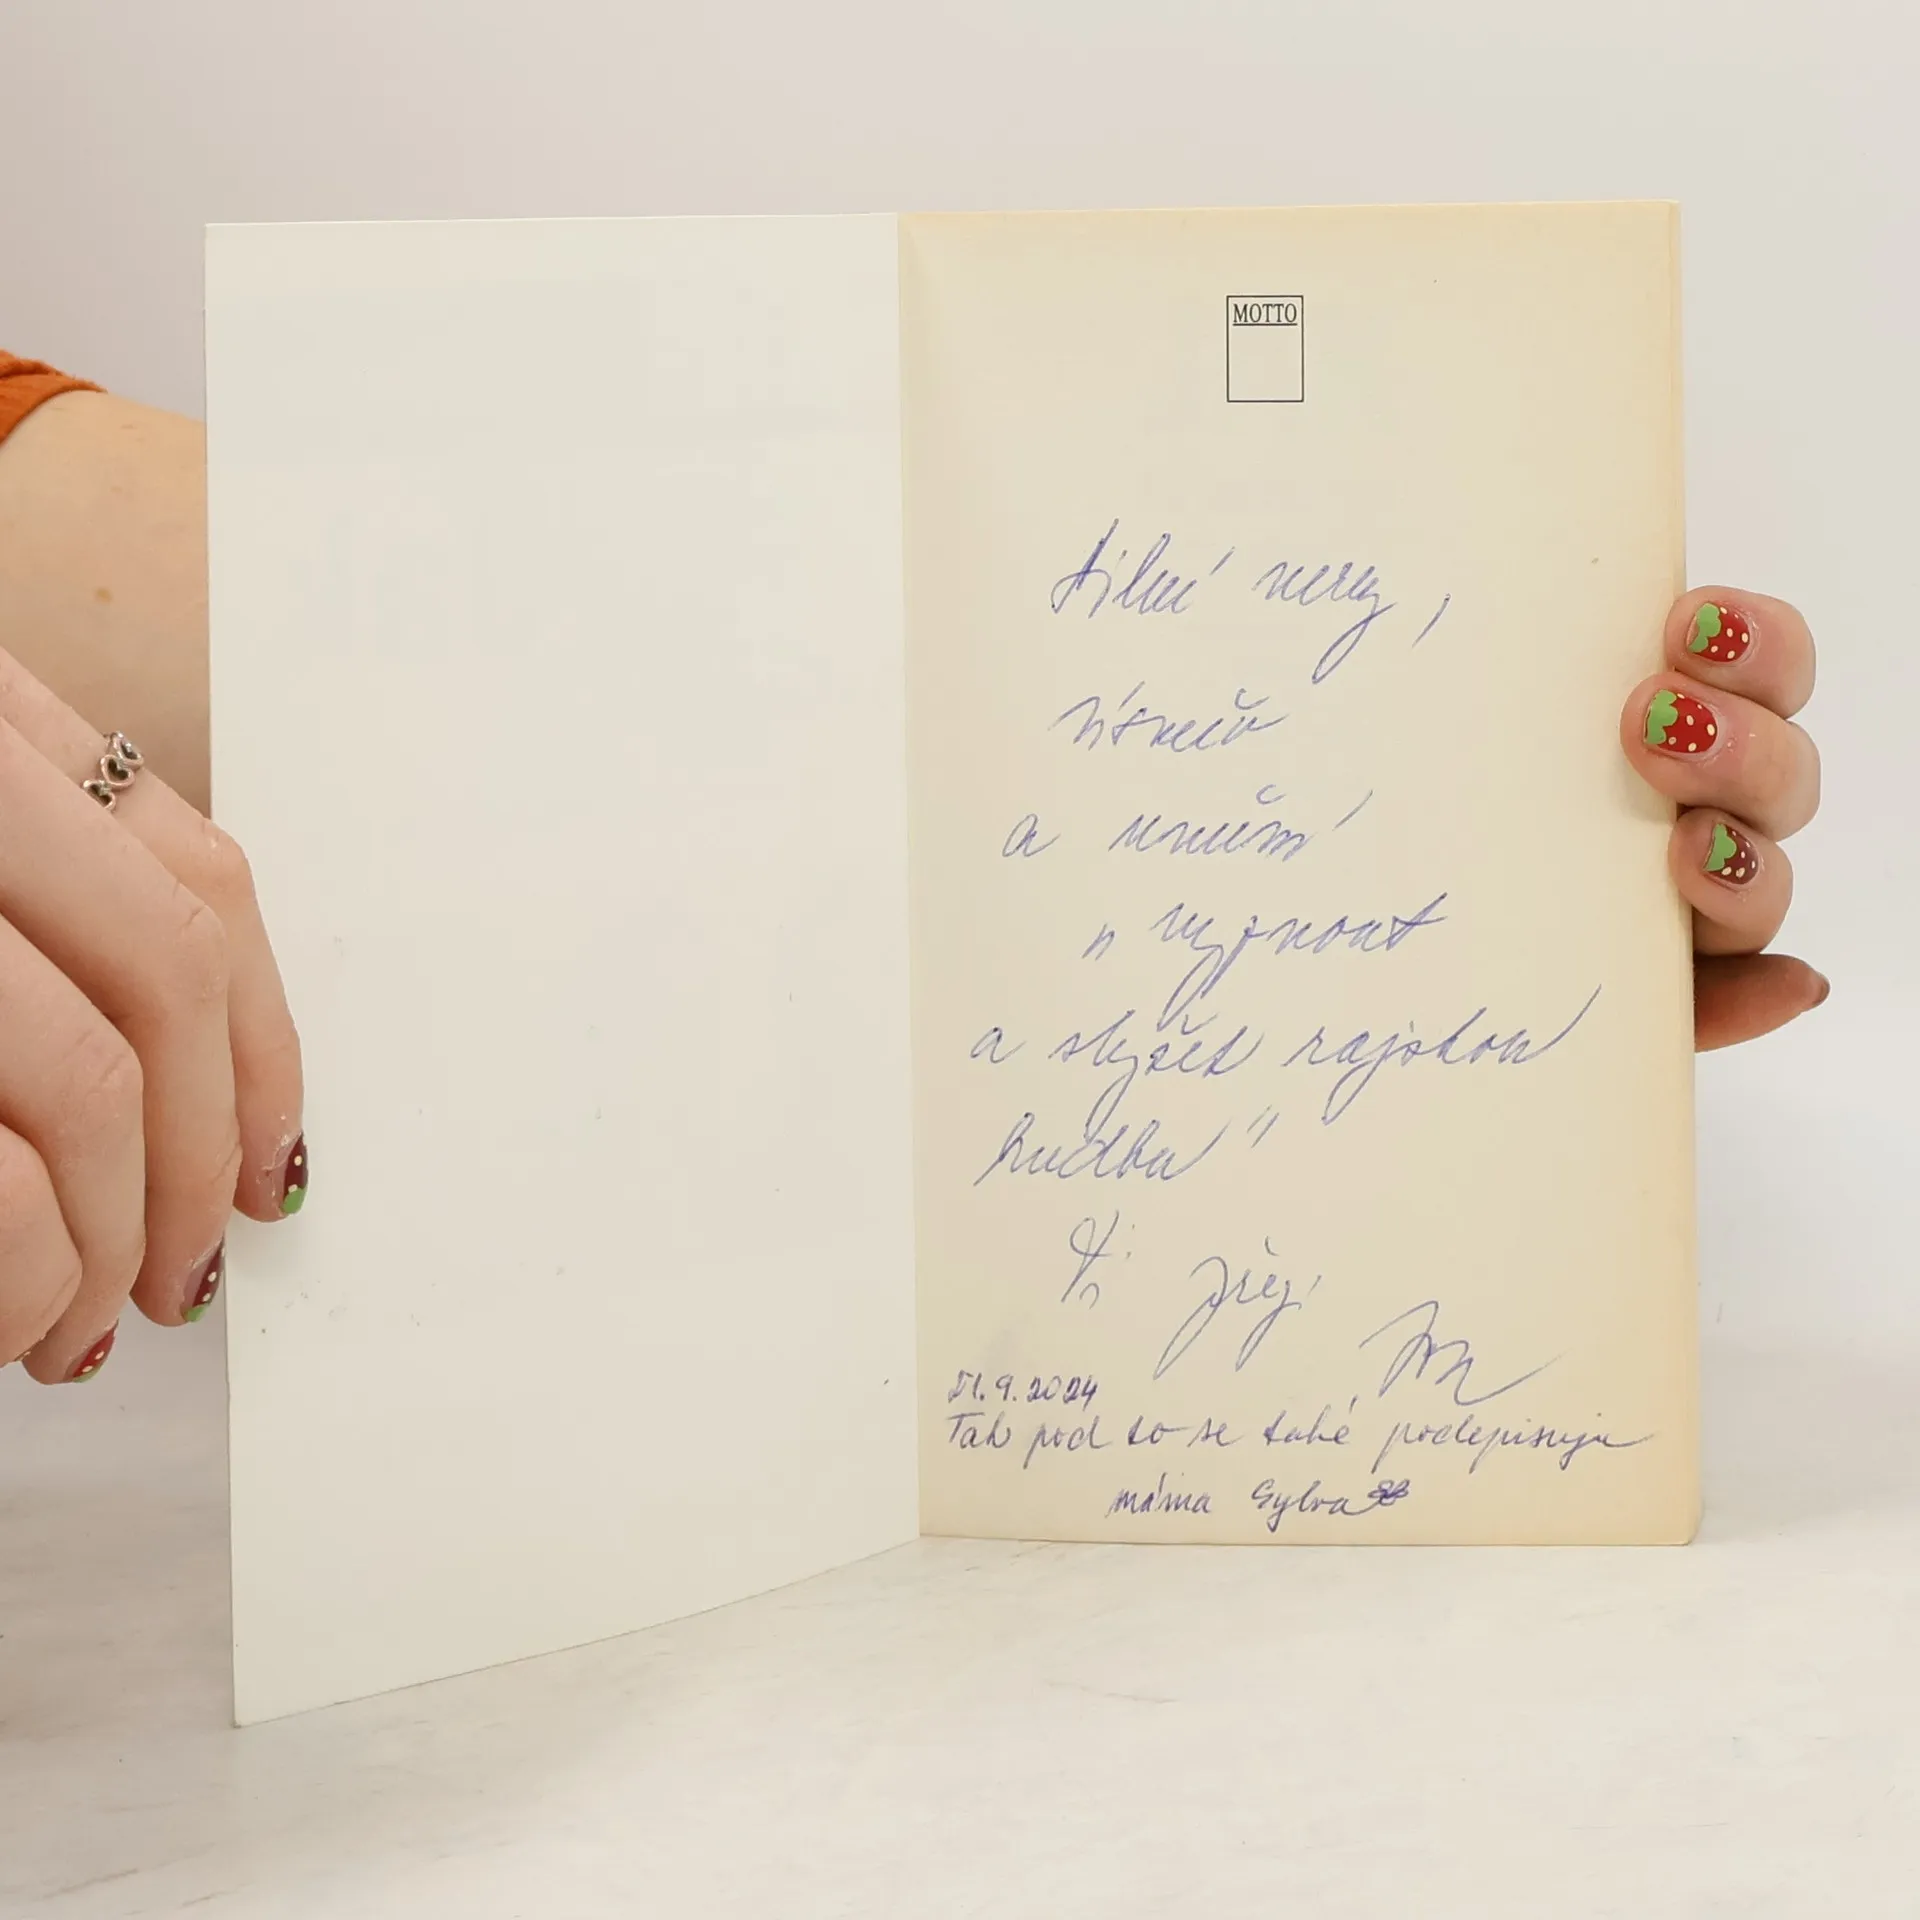 MOTTO
silné nervy,
úsměv
a umění
„vypnout
a slyšet rajskou
hudbu"
Ti přeji
21.9.2024
Tak pod to se také podepisuju
máma Sylva